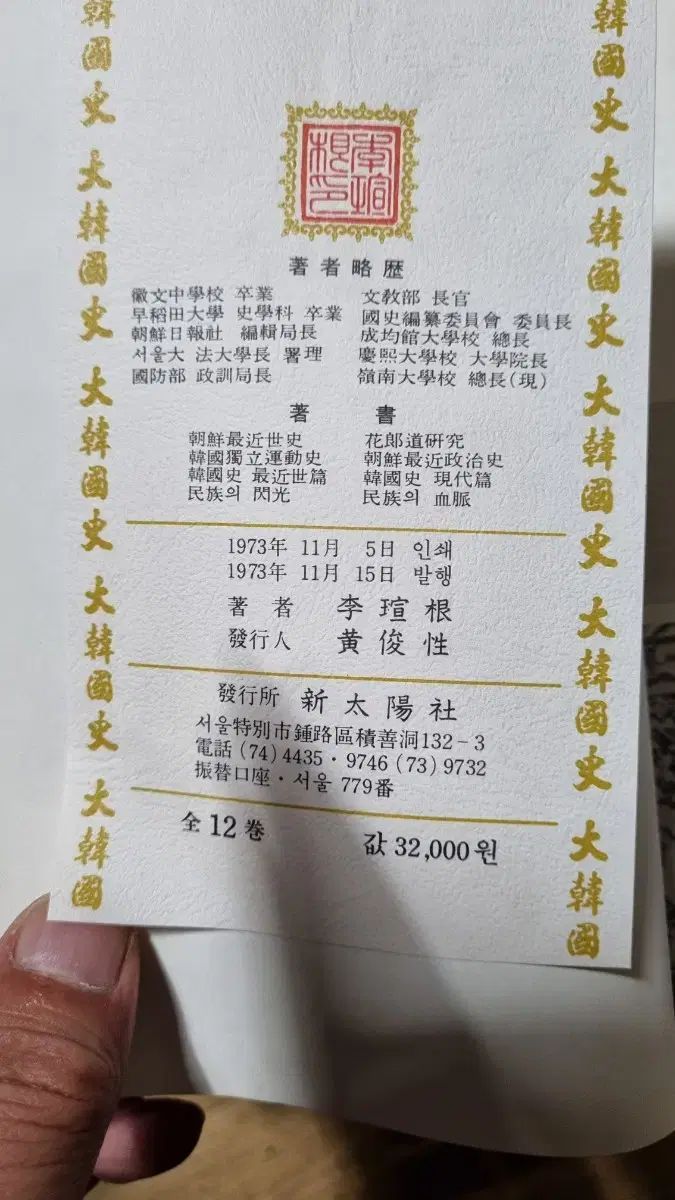 韓國史 大韓國史 大韓國史 大韓國史 大韓國
韓國史 大韓國史 大韓國史 大韓國史 大韓國
李瑄根印
著者略歷
徽文中學校 卒業
早稻田大學 史學科 卒業
朝鮮日報社 編輯局長
서울大 法大學長 署理
國防部 政訓局長
文敎部 長官
國史編纂委員會 委員長
成均館大學校 總長
慶熙大學校 大學院長
嶺南大學校 總長(現)
著 書
朝鮮最近世史
韓國獨立運動史
韓國史 最近世篇
民族의 閃光
花郞道研究
朝鮮最近政治史
韓國史 現代篇
民族의 血脈
1973年 11月 5日 인쇄
1973年 11月 15日 발행
著 者 李瑄根
發行人 黃俊性
發行所 新太陽社
서울特別市鍾路區積善洞132-3
電話 (74) 4435·9746 (73) 9732
振替口座·서울 779番
全 12 卷
값 32,000원